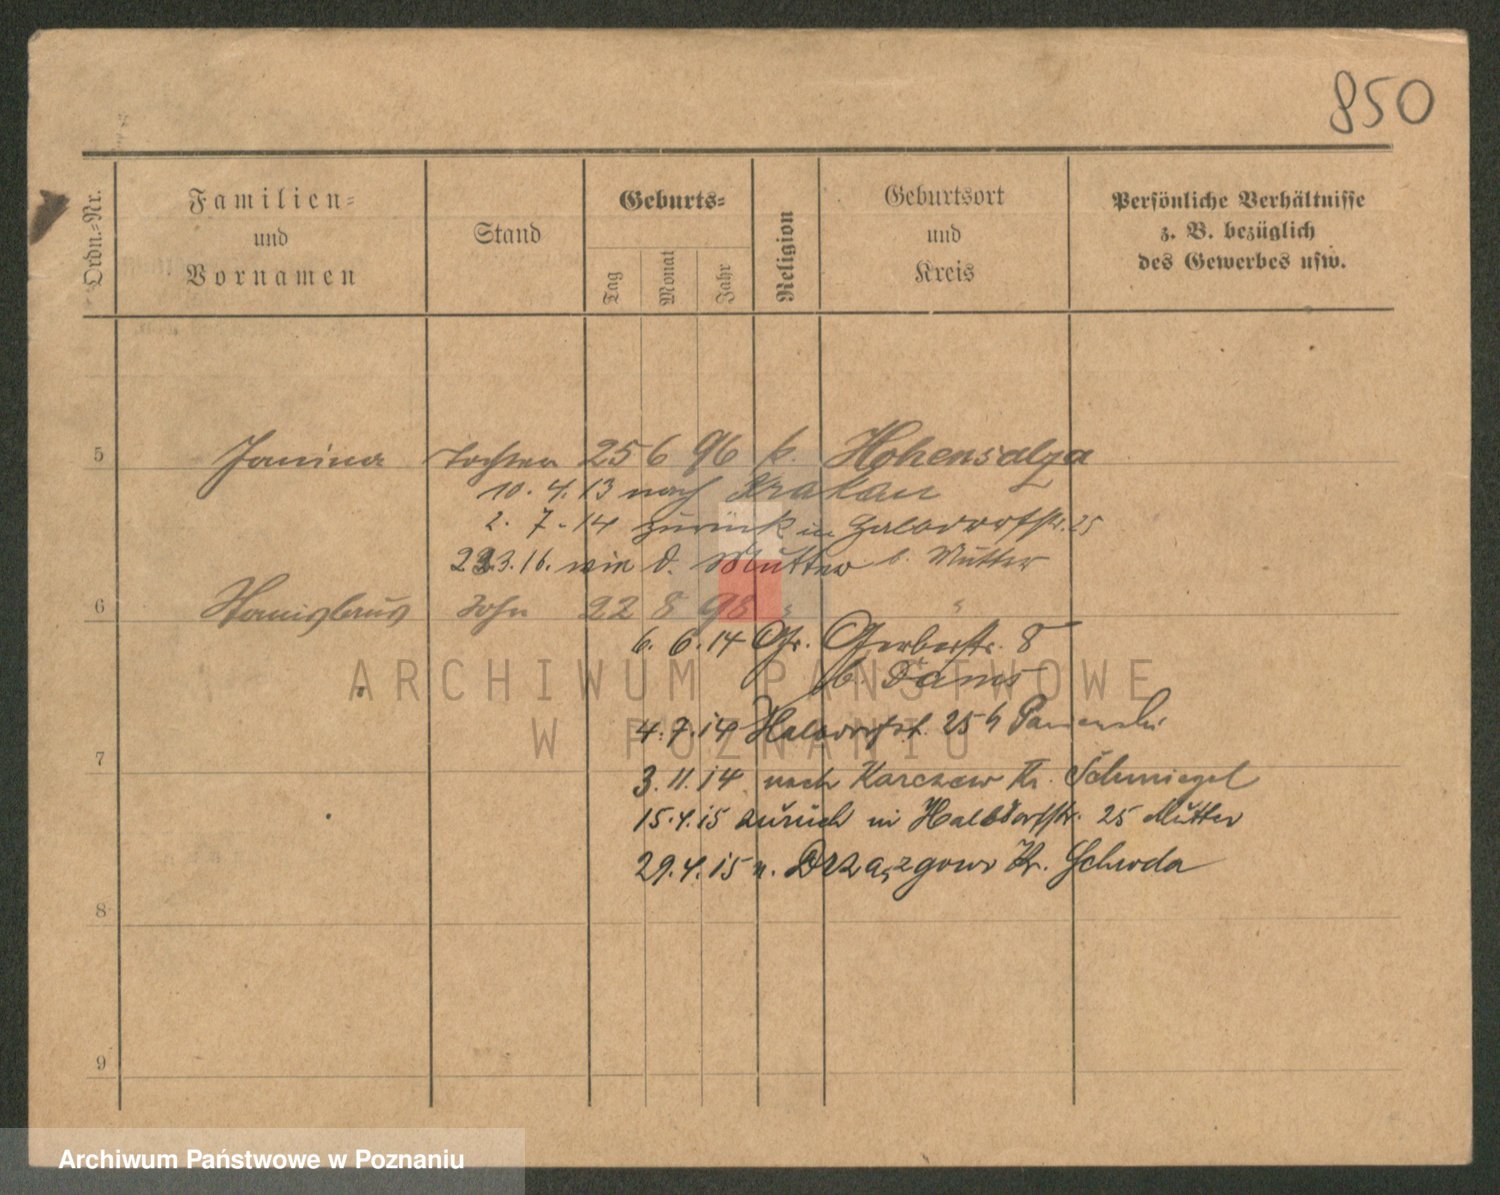 850
Ordn.-Nr.
Familien-
und
Vornamen
Stand
Geburts-
Tag
Monat
Jahr
Religion
Geburtsort
und
Kreis
Persönliche Verhältnisse
z. B. bezüglich
des Gewerbes usw.
5 Janina Tochter 25 6 96 k. Hohensalza
10. 4. 13 nach Krakau
2. 7. 14 zurück in Halbdorfstr. 25
3. 16. wie d. Mutter b. Mutter
6 Stanislaus Sohn 22 8 98 " "
6. 6. 14 Gr. Gerberstr. 8
b. Dams
4. 7. 14 Halbdorfst. 25 b
7
3. 11. 14 nach Karczew Kr. Schmiegel
15. 4. 15 zurück in Halbdorfstr. 25 Mutter
29. 4. 15 n. Drzązgowo Kr. Schroda
8
9
ARCHIWUM PAŃSTWOWE
W POZNANIU
Archiwum Państwowe w Poznaniu